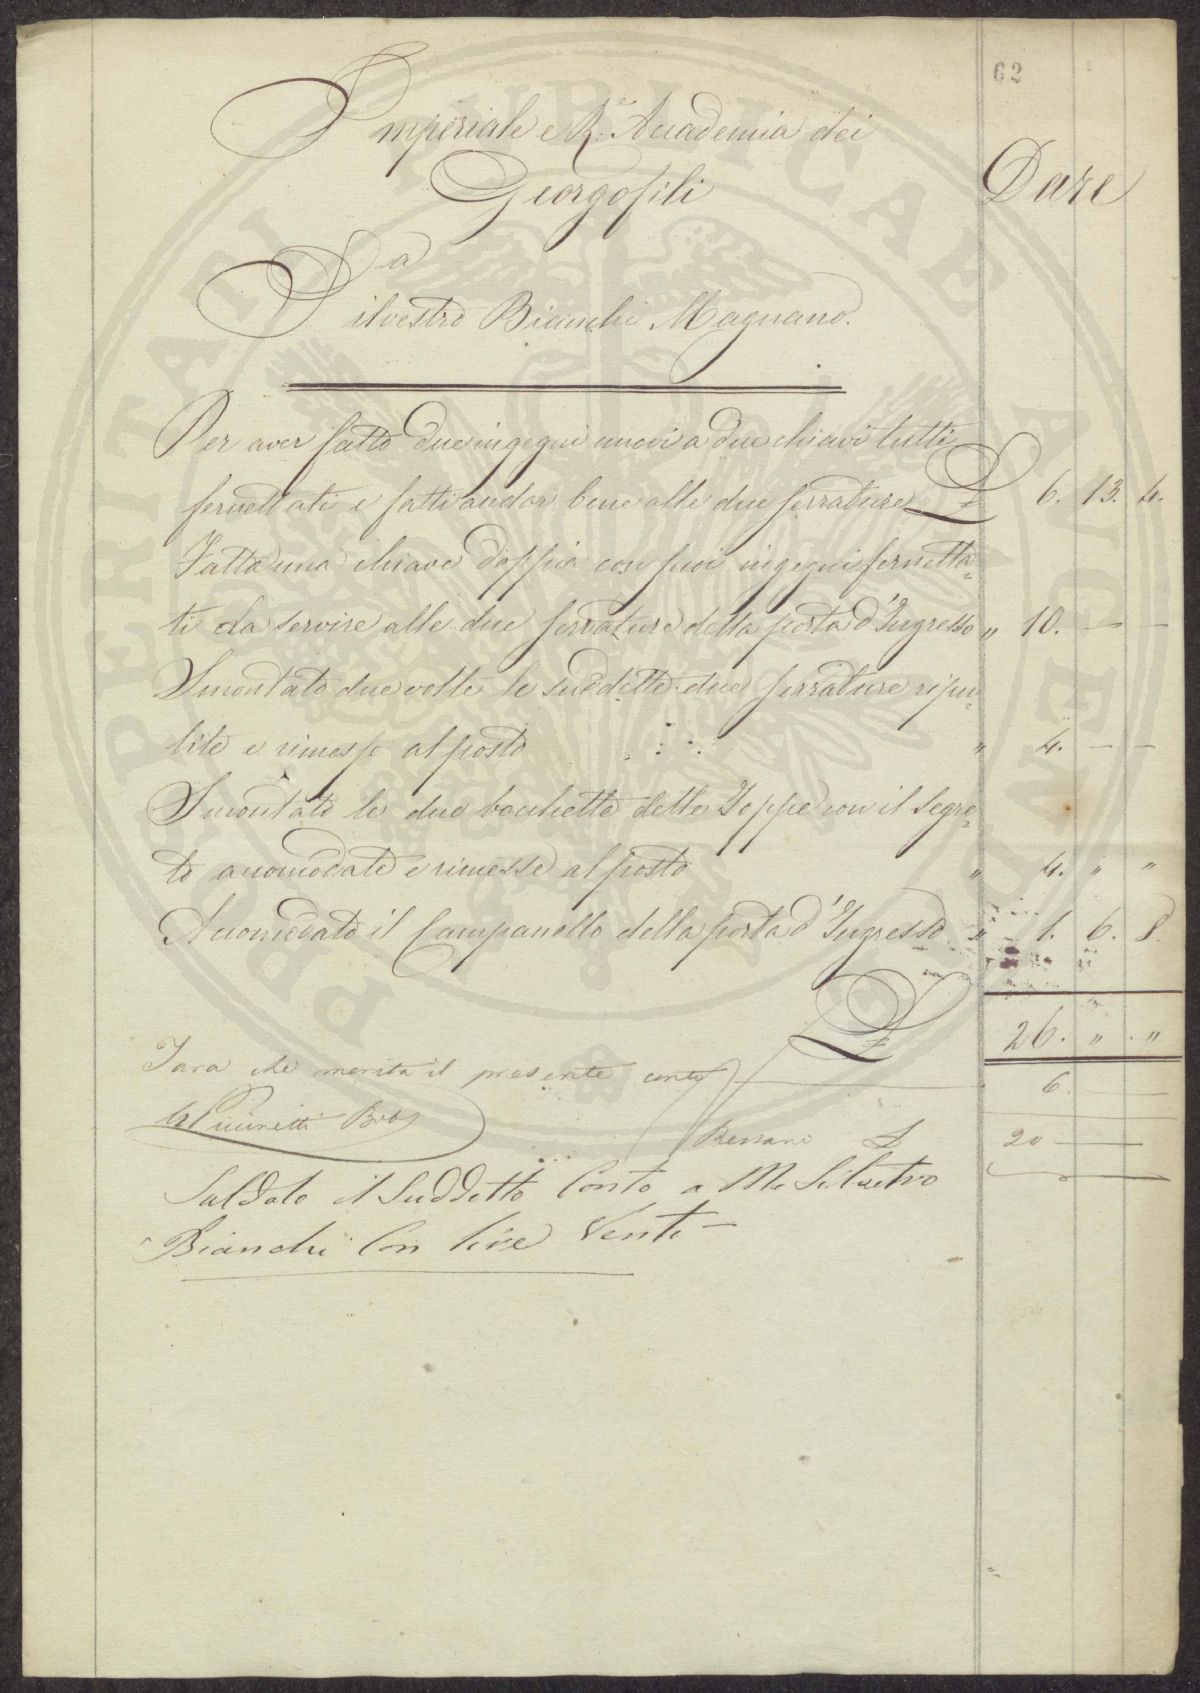 62
Imperiale e R.e Accademia dei
Georgofili
Dare
a
Silvestro Bianchi Magnano.
Per aver fatto due ingegni nuovi a due chiavi tutti
fernettati e fatti andar bene alle due serrature £ 6. 13. 4.
Fatta una chiave doppia con suoi ingegni fernetta=
ti da servire alle due serrature della porta d'Ingresso " 10. — —
Smontato due volte le suddette due serrature ripu=
lite e rimesse al posto " 4. — —
Smontato le due bocchette delle Toppe con il segre=
to accomodate e rimesse al posto " 4. " "
Accomodato il Campanello della porta d'Ingresso " 1. 6. 8.
£ 26. " . "
Tara che merita il presente conto 6. —
Restano £ 20 —
Saldato il Suddetto Conto a Me Silvestro
Bianchi Con lire Venti —
PROSPERITATI PUBLICAE AUGENDAE